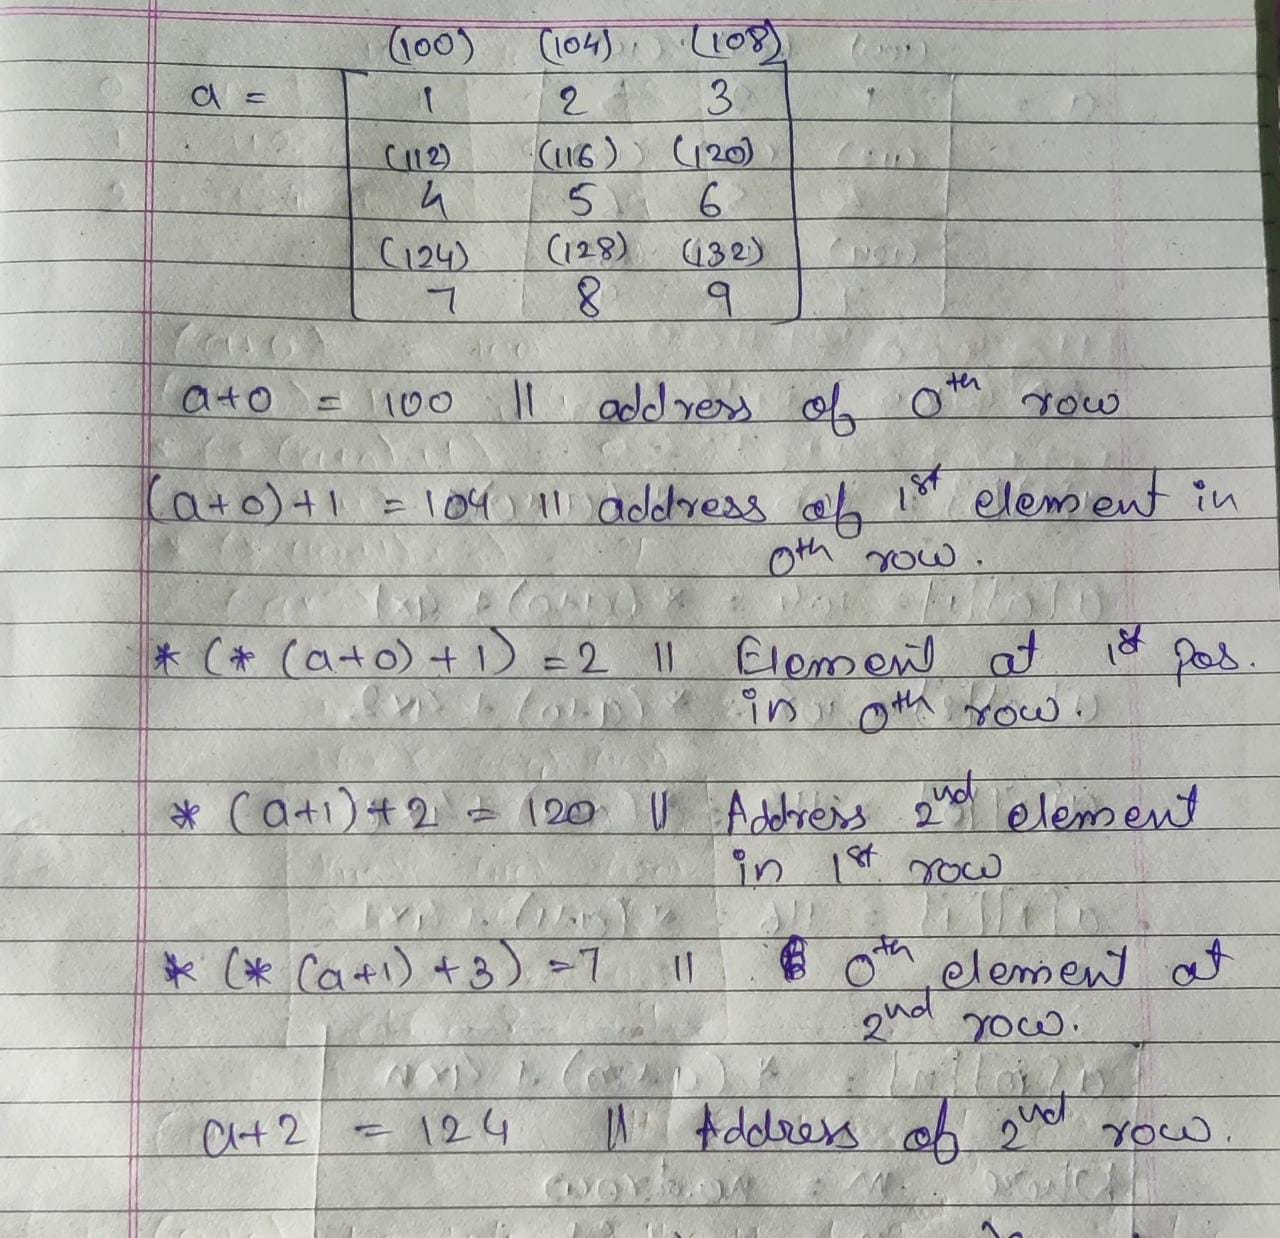 (100) (104) (108)
a = 1 2 3
(112) (116) (120)
4 5 6
(124) (128) (132)
7 8 9
a+0 = 100 // address of 0th row
(a+0)+1 = 104 // address of 1st element in
0th row.
* (* (a+0) + 1) = 2 // Element at 1st pos.
in 0th row.
* (a+1) + 2 = 120 // Address 2nd element
in 1st row
* (* (a+1) + 3) = 7 // 0th element at
2nd row.
a+2 = 124 // Address of 2nd row.